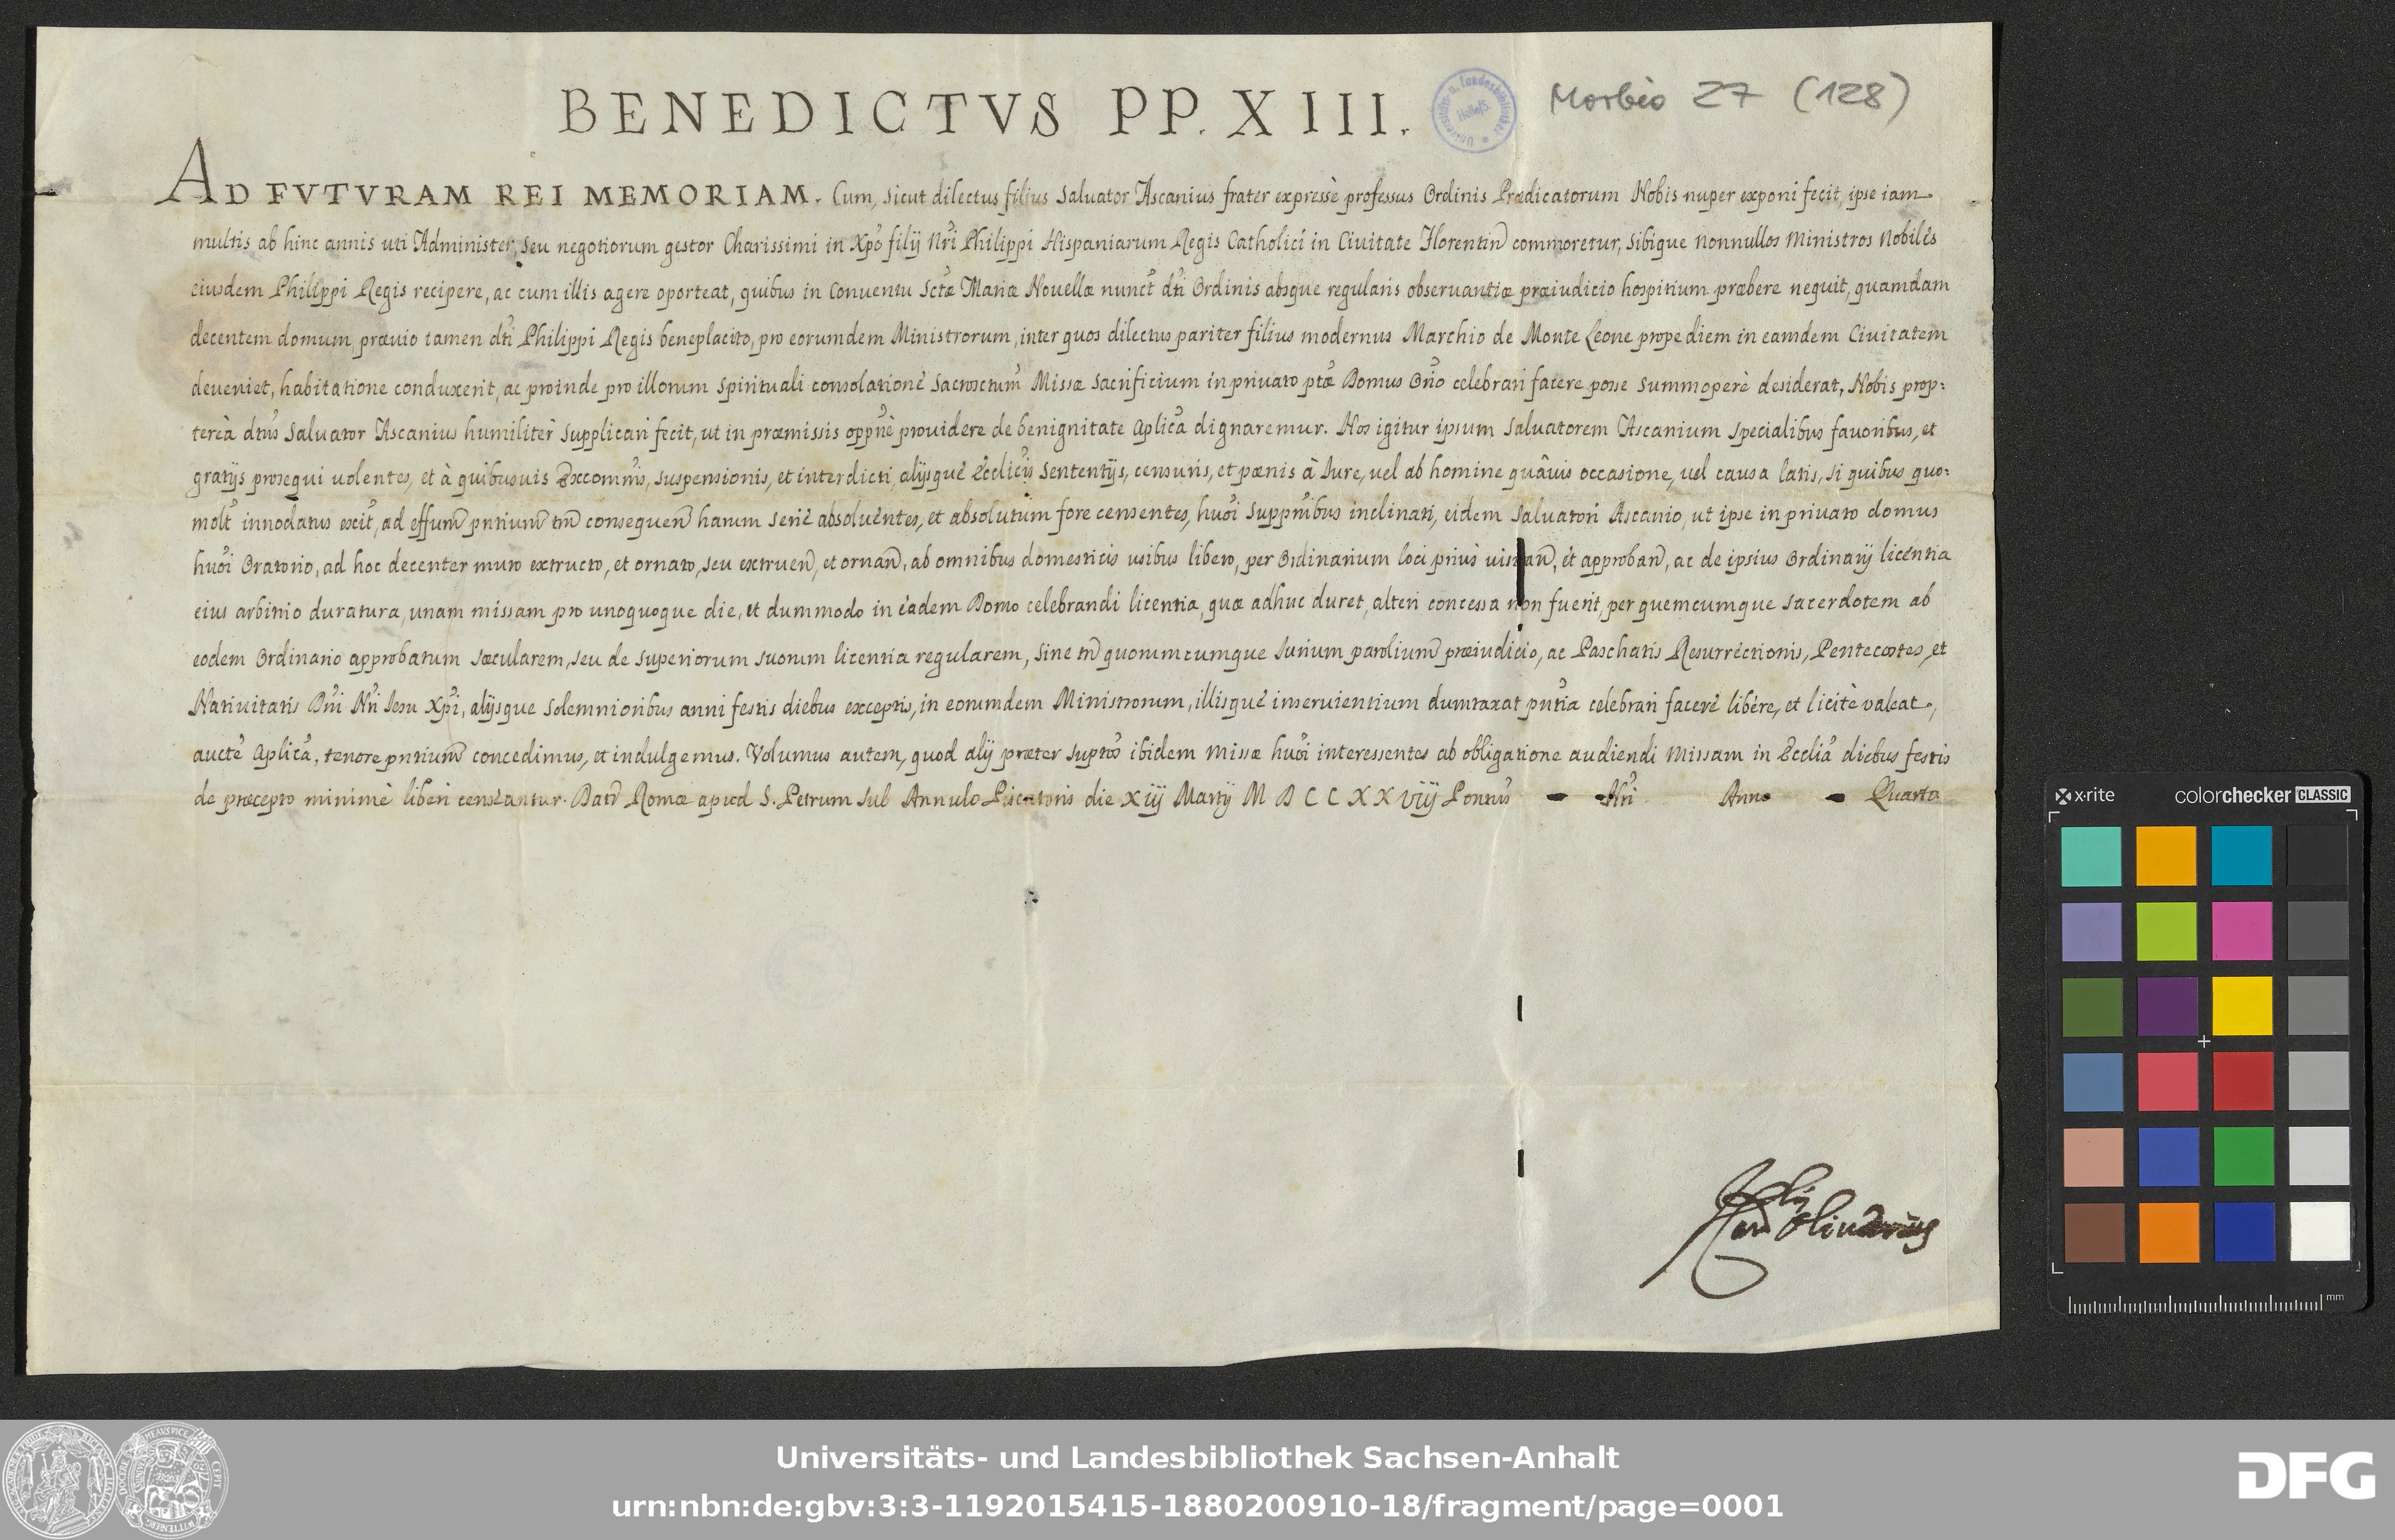 BENEDICTVS PP. XIII.
Morbio 27 (128)
AD FVTVRAM REI MEMORIAM. Cum, sicut dilectus filius Saluator Ascanius frater expressè professus Ordinis Prædicatorum Nobis nuper exponi fecit, ipse iam
multis ab hinc annis uti Administer, seu negotiorum gestor Charissimi in Xpo filij Nri Philippi Hispaniarum Regis Catholici in Ciuitate Florentin commoretur, sibique nonnullos Ministros Nobiles
eiusdem Philippi Regis recipere, ac cum illis agere oporteat, quibus in Conuentu Sctæ Mariæ Nouellæ nunct dti Ordinis absque regularis obseruantiæ præiudicio hospitium præbere nequit, quamdam
decentem domum, præuio tamen dti Philippi Regis beneplacito, pro eorumdem Ministrorum, inter quos dilectus pariter filius modernus Marchio de Monte Leone prope diem in eamdem Ciuitatem
deueniet, habitatione conduxerit, ac proinde pro illorum spirituali consolatione Sacrosctum Missæ Sacrificium in priuato ptæ Domus Orio celebrari facere posse summoperè desiderat, Nobis prop:
tereà dtus Saluator Ascanius humiliter supplicari fecit, ut in præmissis oppnè prouidere de benignitate aplica dignaremur. Nos igitur ipsum Saluatorem Ascanium specialibus fauoribus, et
gratijs prosequi uolentes, et à quibusuis Excommnis, suspensionis, et interdicti, alijsque Ecclicis sententijs, censuris, et pœnis à Iure, uel ab homine quâuis occasione, uel causa latis, si quibus quo:
molt innodatus exit, ad effum pntium tm consequen harum serie absoluentes, et absolutum fore censentes, huoi suppnibus inclinati, eidem Saluatori Ascanio, ut ipse in priuato domus
huoi Oratorio, ad hoc decenter muro extructo, et ornato, seu extruen, et ornan, ab omnibus domesticis usibus libero, per Ordinarium loci priùs uisitan, et approban, ac de ipsius Ordinarij licentia
eius arbitrio duratura, unam missam pro unoquoque die, et dummodo in eadem Domo celebrandi licentia, quæ adhuc duret, alteri concessa non fuerit, per quemcumque sacerdotem ab
eodem Ordinario approbatum sæcularem, seu de superiorum suorum licentia regularem, sine tn quorumcumque Iurium parolium præiudicio, ac Paschatis Resurrectionis, Pentecostes, et
Natiuitatis Dni Nri Iesu Xpi, alijsque solemnioribus anni festis diebus exceptis, in eorumdem Ministrorum, illisque inseruientium dumtaxat pntia celebrari facere liberè, et licitè valeat,
aucte aplica, tenore pntium concedimus, et indulgemus. Volumus autem, quod alij præter suptos ibidem missæ huoi interessentes ab obligatione audiendi Missam in Ecclia diebus festis
de præcepto minimè liberi censeantur. Dat Romæ apud S. Petrum sub Annulo Piscatoris die XIIJ Martij MDCCXXVIIJ Pontus Nri Anno Quarto
x-rite
colorchecker CLASSIC
mm
Universitäts- und Landesbibliothek Sachsen-Anhalt
urn:nbn:de:gbv:3:3-1192015415-1880200910-18/fragment/page=0001
DFG